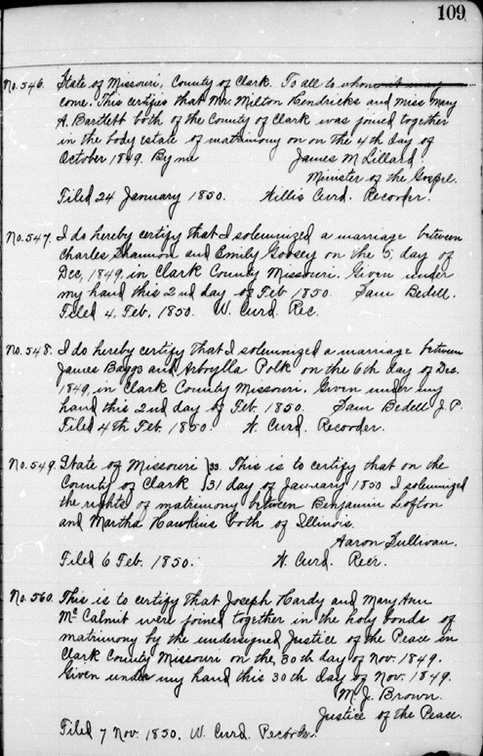 109
No. 546. State of Missouri, County of Clark. To all to whom it may
come. This certifies that Mr. Milton Hendricks and Miss Mary
A. Bartlett both of the County of Clark was joined together
in the body estate of matrimony on on the 4th day of
October 1849. By me James M Lillard
Minister of the Gospel.
Filed 24 January 1850. Willis Curd. Recorder.
No. 547. I do hereby certify that I solemnized a marriage between
Charles Shannon and Emily Goosey on the 5, day of
Dec, 1849, in Clark County Missouri. Given under
my hand this 2nd day of Feb 1850. Sam Bedell.
Filed 4, Feb. 1850. W. Curd Rec.
No. 548. I do hereby certify that I solemnized a marriage between
James Baggs and Arbylla Polk on the 6th day of Dec.
1849, in Clark County Missouri. Given under my
hand this 2nd day of Feb. 1850. Sam Bedell J. P.
Filed 4th Feb. 1850. W. Curd. Recorder.
No. 549. State of Missouri } ss. This is to certify that on the
County of Clark } 31 day of January 1850 I solemnized
the rights of matrimony between Benjamin Lofton
and Martha Hawkins both of Illinois.
Aaron Sullivan.
Filed 6 Feb. 1850. W. Curd. Recr.
No. 560. This is to certify that Joseph Hardy and Mary Ann
Mc Calmit were joined together in the holy bonds of
matrimony by the undersigned Justice of the Peace in
Clark County Missouri on the, 30th day of Nov. 1849.
Given under my hand this 30th day of Nov. 1849.
M. J. Brown.
Justice of the Peace.
Filed 7 Nov. 1850. W. Curd. Recorder.